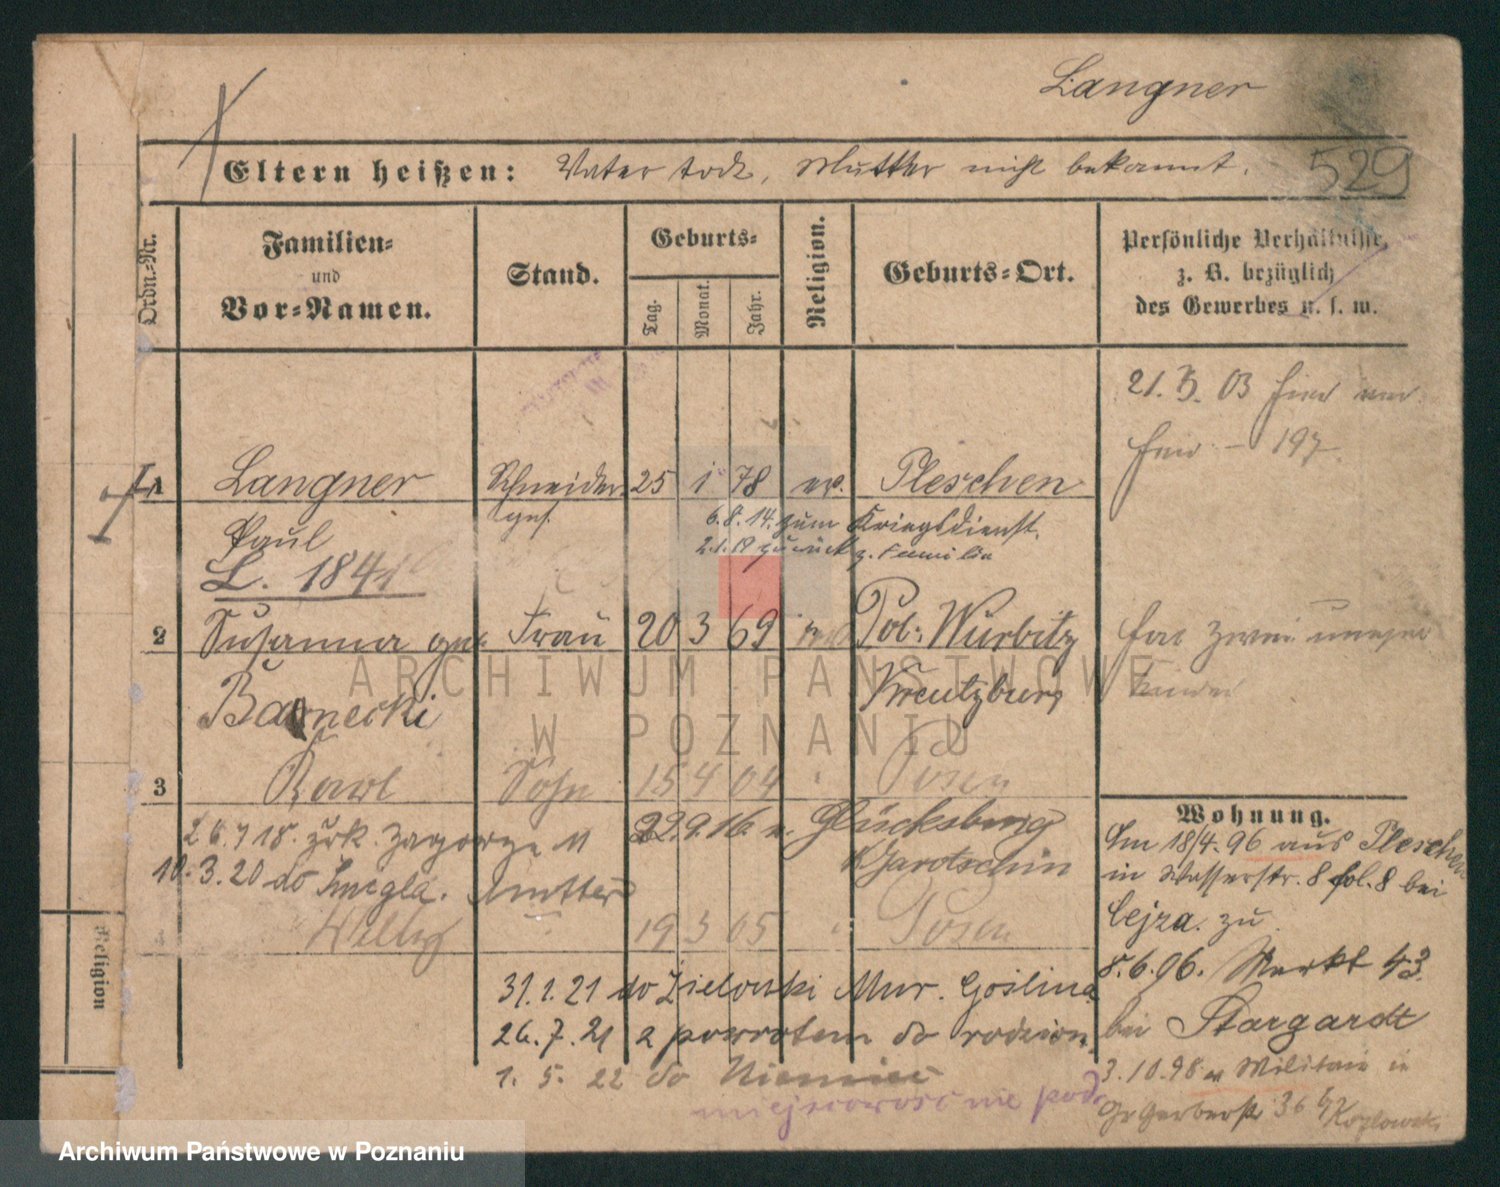 Langner
529
Eltern heißen: Vater todt, Mutter nicht bekannt.
Ordn.-Nr.
Familien-
und
Vor-Namen.
Stand.
Geburts-
Tag.
Monat.
Jahr.
Religion.
Geburts-Ort.
Persönliche Verhältnisse,
z. B. bezüglich
des Gewerbes u. s. w.
1 Langner Schneider 25 1 78 ev. Pleschen
ges.
Paul
6.8.14. zum Kriegsdienst.
2.1.19 zurück z. Familie
L. 1841
2 Susanna geb. Frau 20 3 69 Pol. Würbitz
Barnecki
Kreutzburg
3 Karl Sohn 15 4 04 Posen
26.7.18. zrk. Zagorze 11
22.9.16 n. Glücksburg
Kr Jarotschin
10.3.20 do Śmigla. Mutter
4 Willy 19 3 05 Posen
31.1.21 do Zielonki Mur. Goślina
26.7.21 z powrotem do rodzin.
1. 5. 22 do Niemiec
miejscowość nie pod.
21. 3. 03
197
hat zwei
Kinder
Wohnung.
Am 18/4. 96 aus Pleschen
in Wasserstr. 8 fol. 8 bei
Cejza. zu
8.6.96. Markt 43.
bei Stargardt
3.10.98 Militair in
Gr Gerberstr 36 b/ Kozlowski
Religion
ARCHIWUM PAŃSTWOWE
W POZNANIU
Archiwum Państwowe w Poznaniu